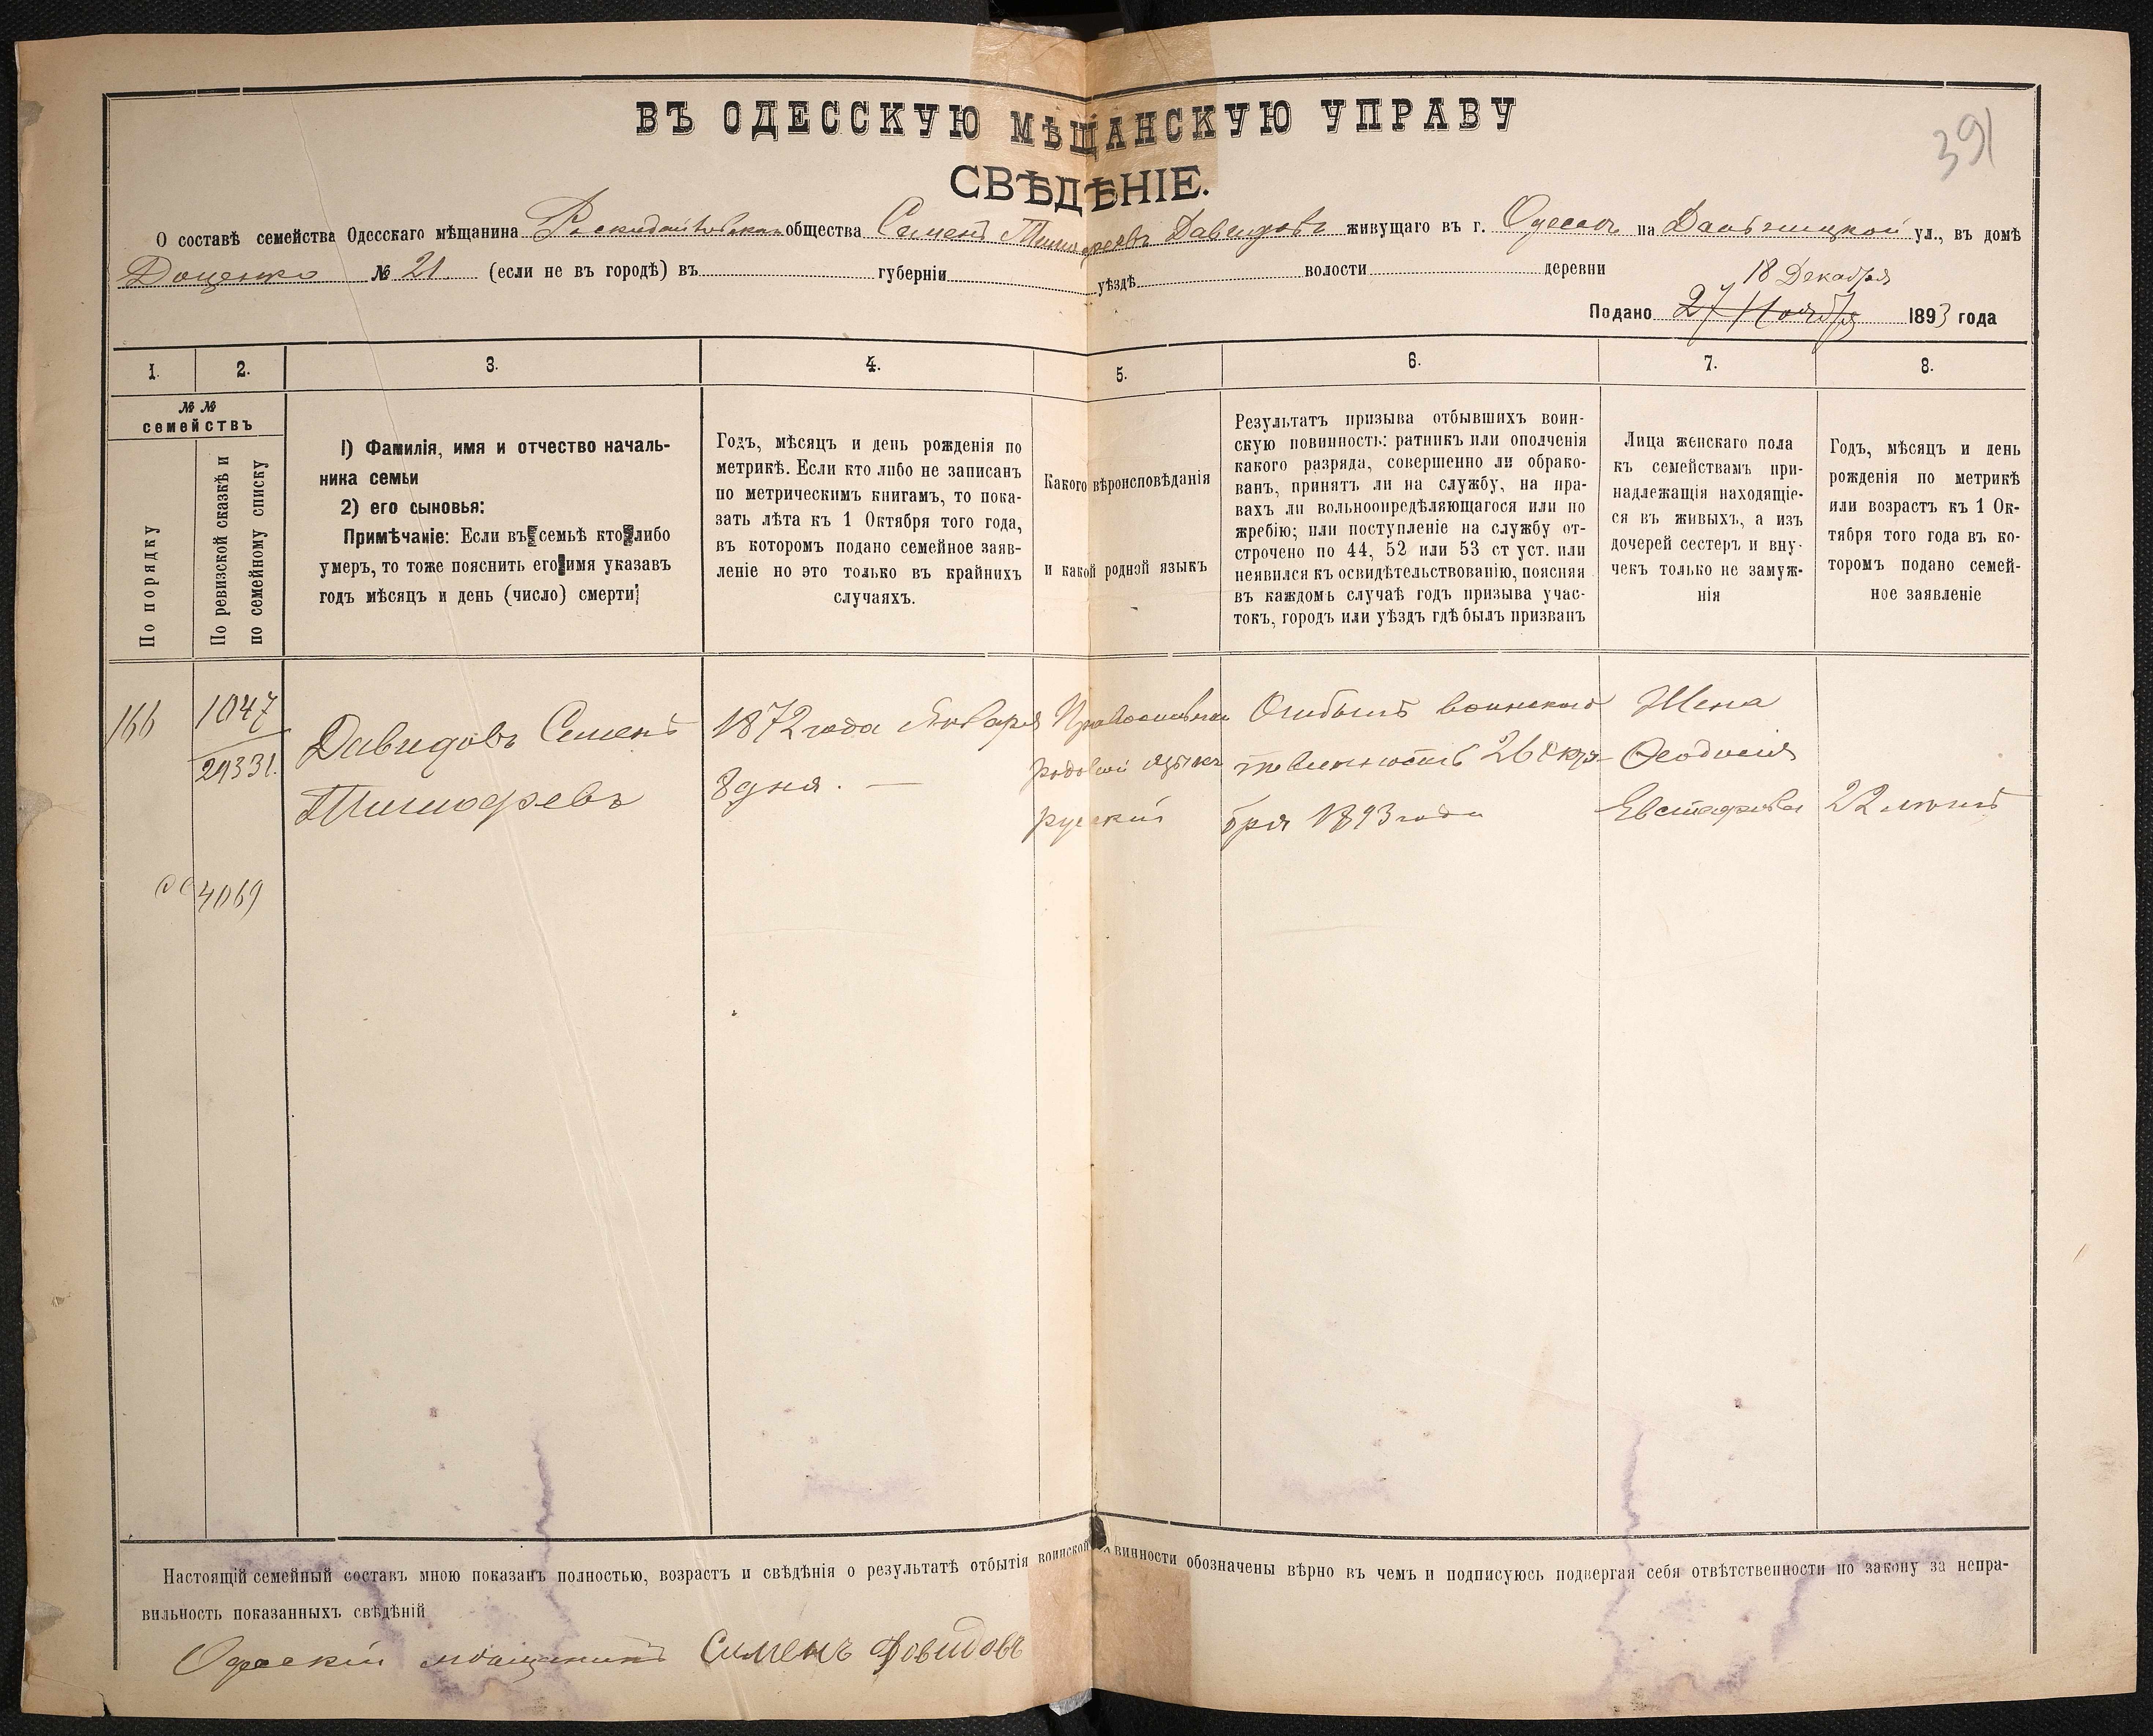 391
ВЪ ОДЕССКУЮ МѢЩАНСКУЮ УПРАВУ
СВѢДѢНІЕ.
О составѣ семейства Одесскаго мѣщанина общества Семенъ Тимофеевъ Давидовъ живущаго въ г. Одессѣ на Дальницкой ул., въ домѣ
Доценко № 21 (если не въ городѣ) въ губерніи уѣздѣ волости деревни
18 Декабря
Подано 27 Ноября 1893 года
1. 2. 3. 4. 5. 6. 7. 8.
№ №
семействъ
По порядку
По ревизской сказкѣ и
по семейному списку
1) Фамилія, имя и отчество началь-
ника семьи
2) его сыновья:
Примѣчаніе: Если въ семьѣ кто либо
умеръ, то тоже пояснить его имя указавъ
годъ мѣсяцъ и день (число) смерти
Годъ, мѣсяцъ и день рожденія по
метрикѣ. Если кто либо не записанъ
по метрическимъ книгамъ, то пока-
зать лѣта къ 1 Октября того года,
въ которомъ подано семейное заяв-
леніе но это только въ крайнихъ
случаяхъ.
Какого вѣроисповѣданія
и какой родной языкъ
Результатъ призыва отбывшихъ воин-
скую повинность: ратникъ или ополченія
какого разряда, совершенно ли обрако-
ванъ, принятъ ли на службу, на пра-
вахъ ли вольноопредѣляющагося или по
жребію; или поступленіе на службу от-
строчено по 44, 52 или 53 ст уст. или
неявился къ освидѣтельствованію, поясняя
въ каждомъ случаѣ годъ призыва учас-
токъ, городъ или уѣздъ гдѣ былъ призванъ
Лица женскаго пола
къ семействамъ при-
надлежащія находящіе-
ся въ живыхъ, а изъ
дочерей сестеръ и вну-
чекъ только не замуж-
нія
Годъ, мѣсяцъ и день
рожденія по метрикѣ
или возрастъ къ 1 Ок-
тября того года въ ко-
торомъ подано семей-
ное заявленіе
166
1047
29331.
4069
Давидовъ Семенъ
Тимофеевъ
1872 года Января
8 дня. —
Православнаго
родовой языкъ
русскій
Отбылъ воинскою
повинность 26 Октя-
бря 1893 года
Жена
Ѳеодосія
Евстафьева
22 летъ
Настоящій семейный составъ мною показанъ полностью, возрастъ и свѣдѣнія о результатѣ отбытія воинской повинности обозначены вѣрно въ чемъ и подписуюсь подвергая себя отвѣтственности по закону за непра-
вильность показанныхъ свѣдѣній
Одесскій мѣщанинъ Сименъ Довидовъ